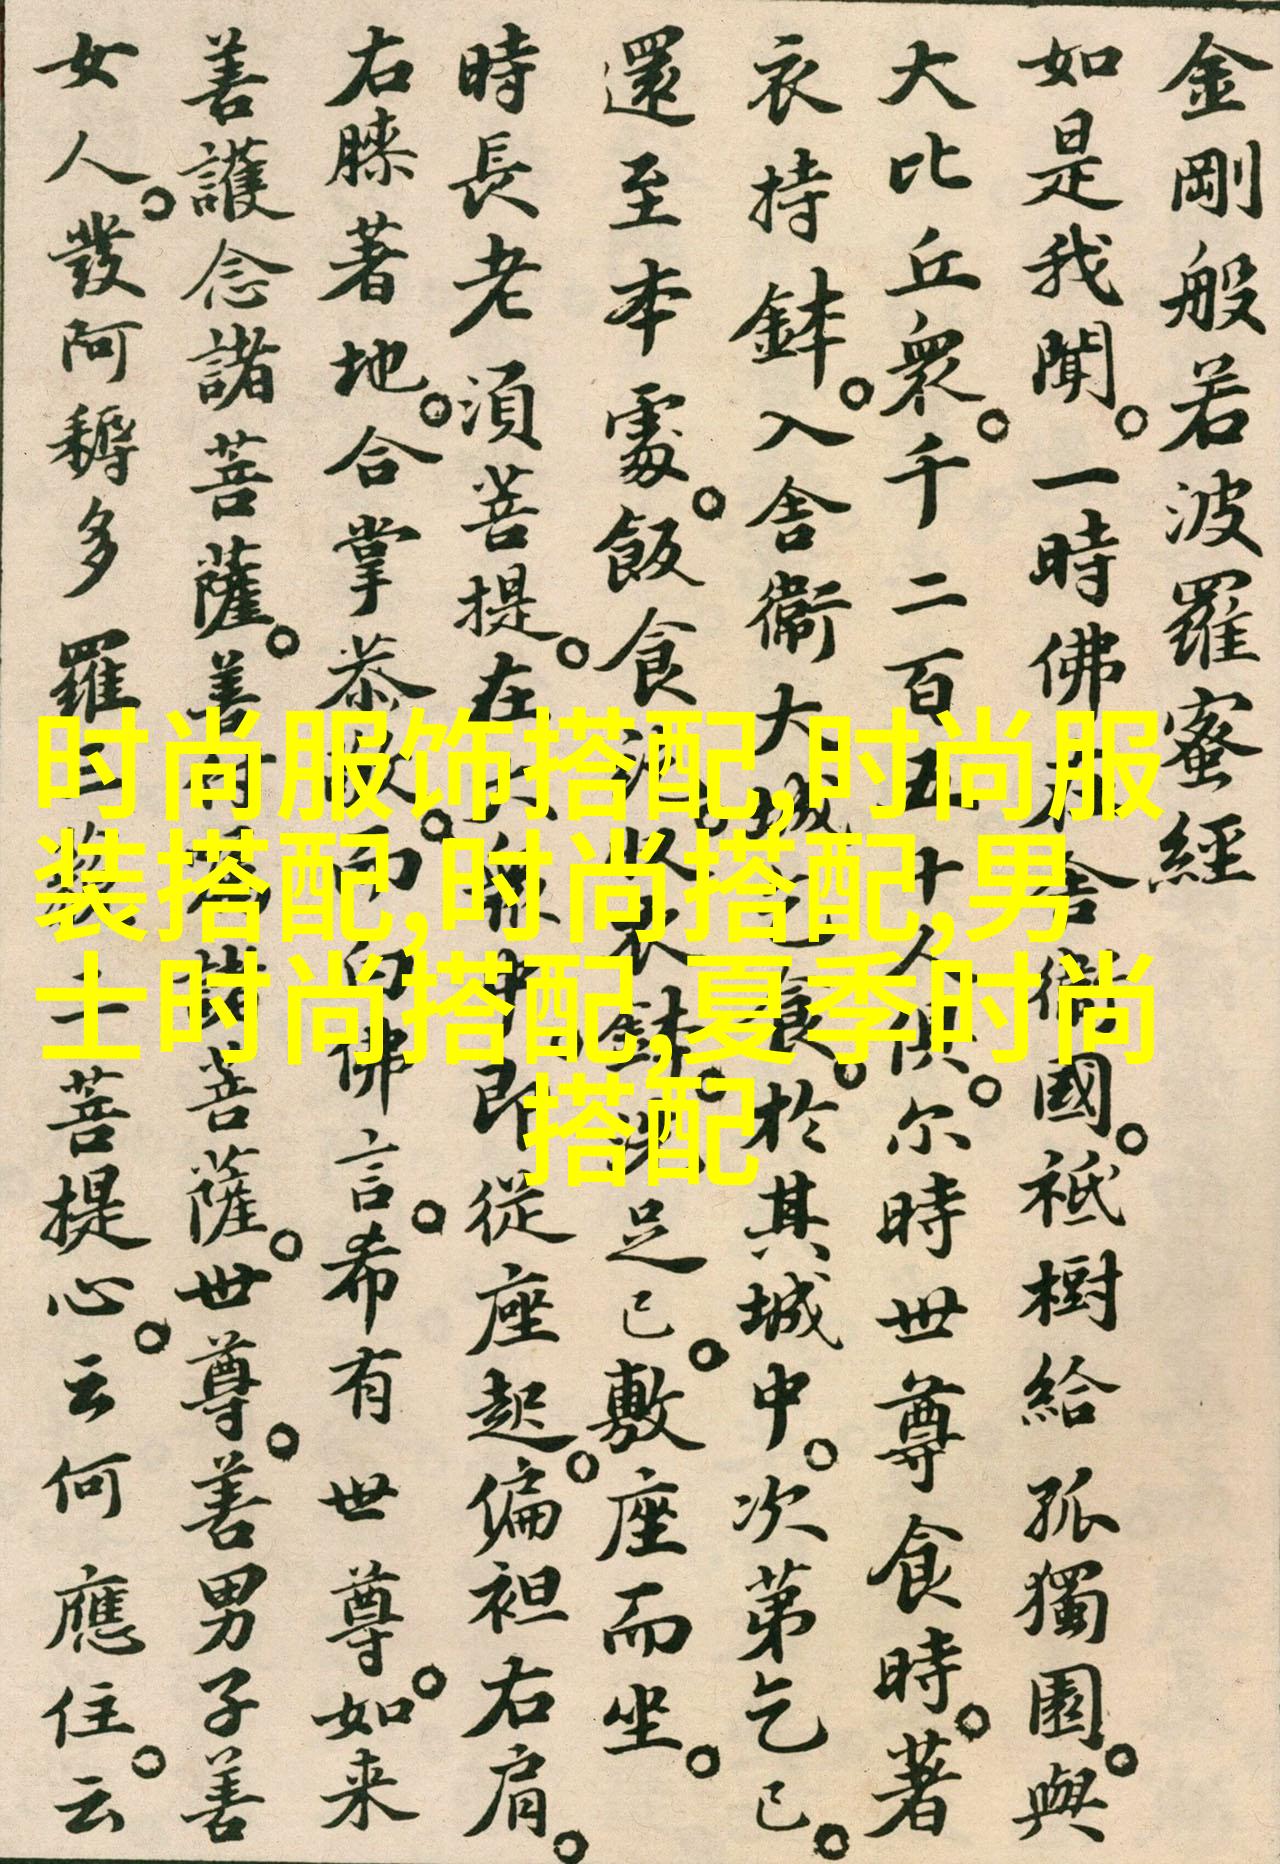 金剛般若波羅蜜經
如是我聞。一時佛在舍衛國。祇樹給孤獨園。與
大比丘眾。千二百五十人俱。尔時世尊食時。著
衣持鉢。入舍衛大城乞食。於其城中。次第乞已。
還至本處。飯食訖。收衣鉢。洗足已。敷座而坐。
時長老須菩提。在大眾中。即從座起。偏袒右肩。
右膝著地。合掌恭敬。而白佛言。希有世尊。如来
善護念諸菩薩。善付囑諸菩薩。世尊。善男子善
女人。發阿耨多羅三藐三菩提心。云何應住。云
时尚服饰搭配,时尚服
装搭配,时尚搭配,男
士时尚搭配,夏季时尚
搭配